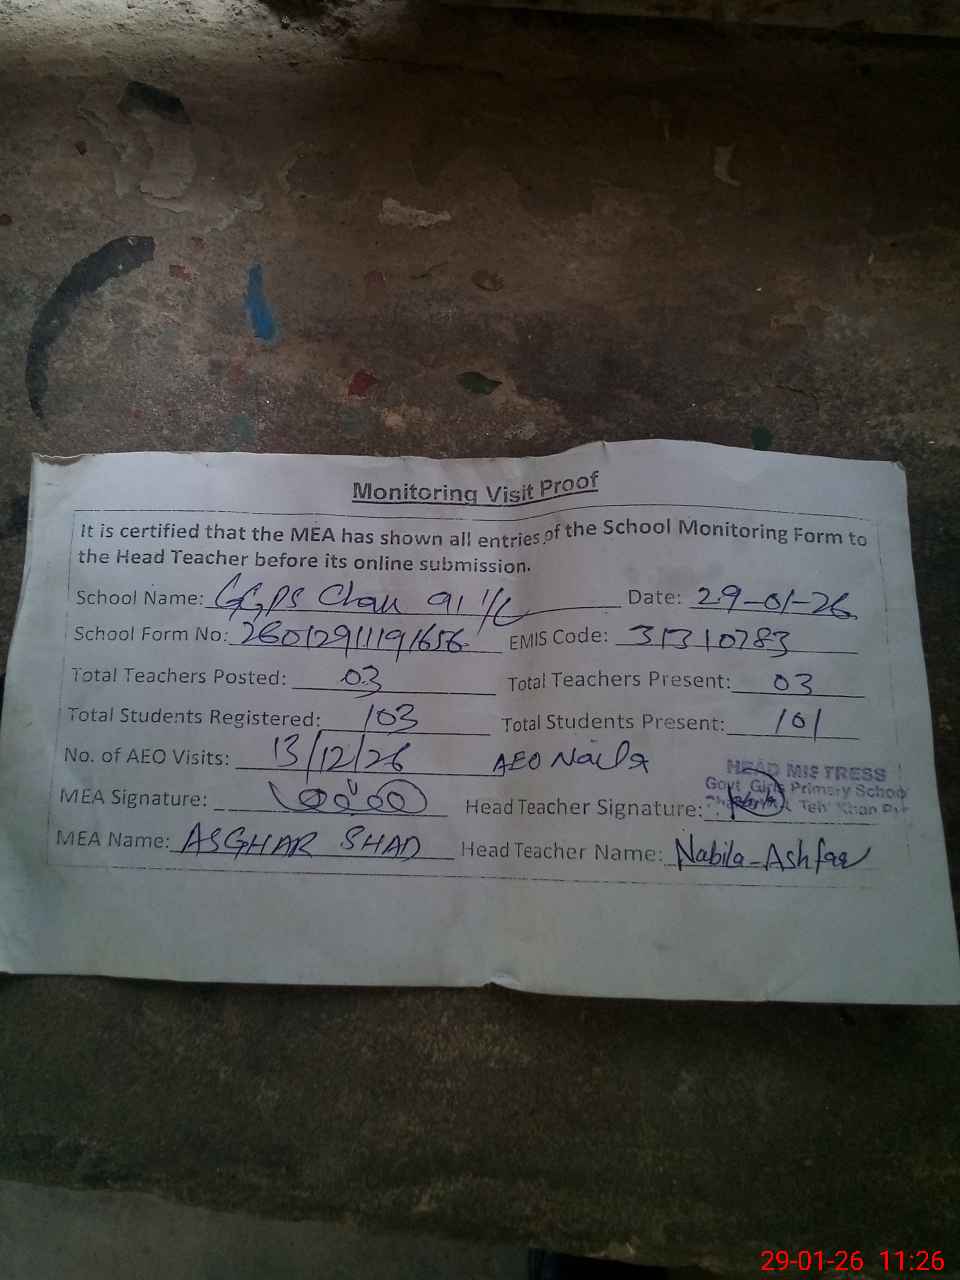 Monitoring Visit Proof
It is certified that the MEA has shown all entries of the School Monitoring Form to
the Head Teacher before its online submission.
School Name: GGPS Chak 91 1/L Date: 29-01-26
School Form No: 26012911191656 EMIS Code: 31310783
Total Teachers Posted: 03 Total Teachers Present: 03
Total Students Registered: 103 Total Students Present: 101
No. of AEO Visits: 13/12/26 AEO Naila
HEAD MISTRESS
Govt Girls Primary School
Teh Khan
MEA Signature: Head Teacher Signature:
MEA Name: ASGHAR SHAD Head Teacher Name: Nabila-Ashfaq
29-01-26 11:26